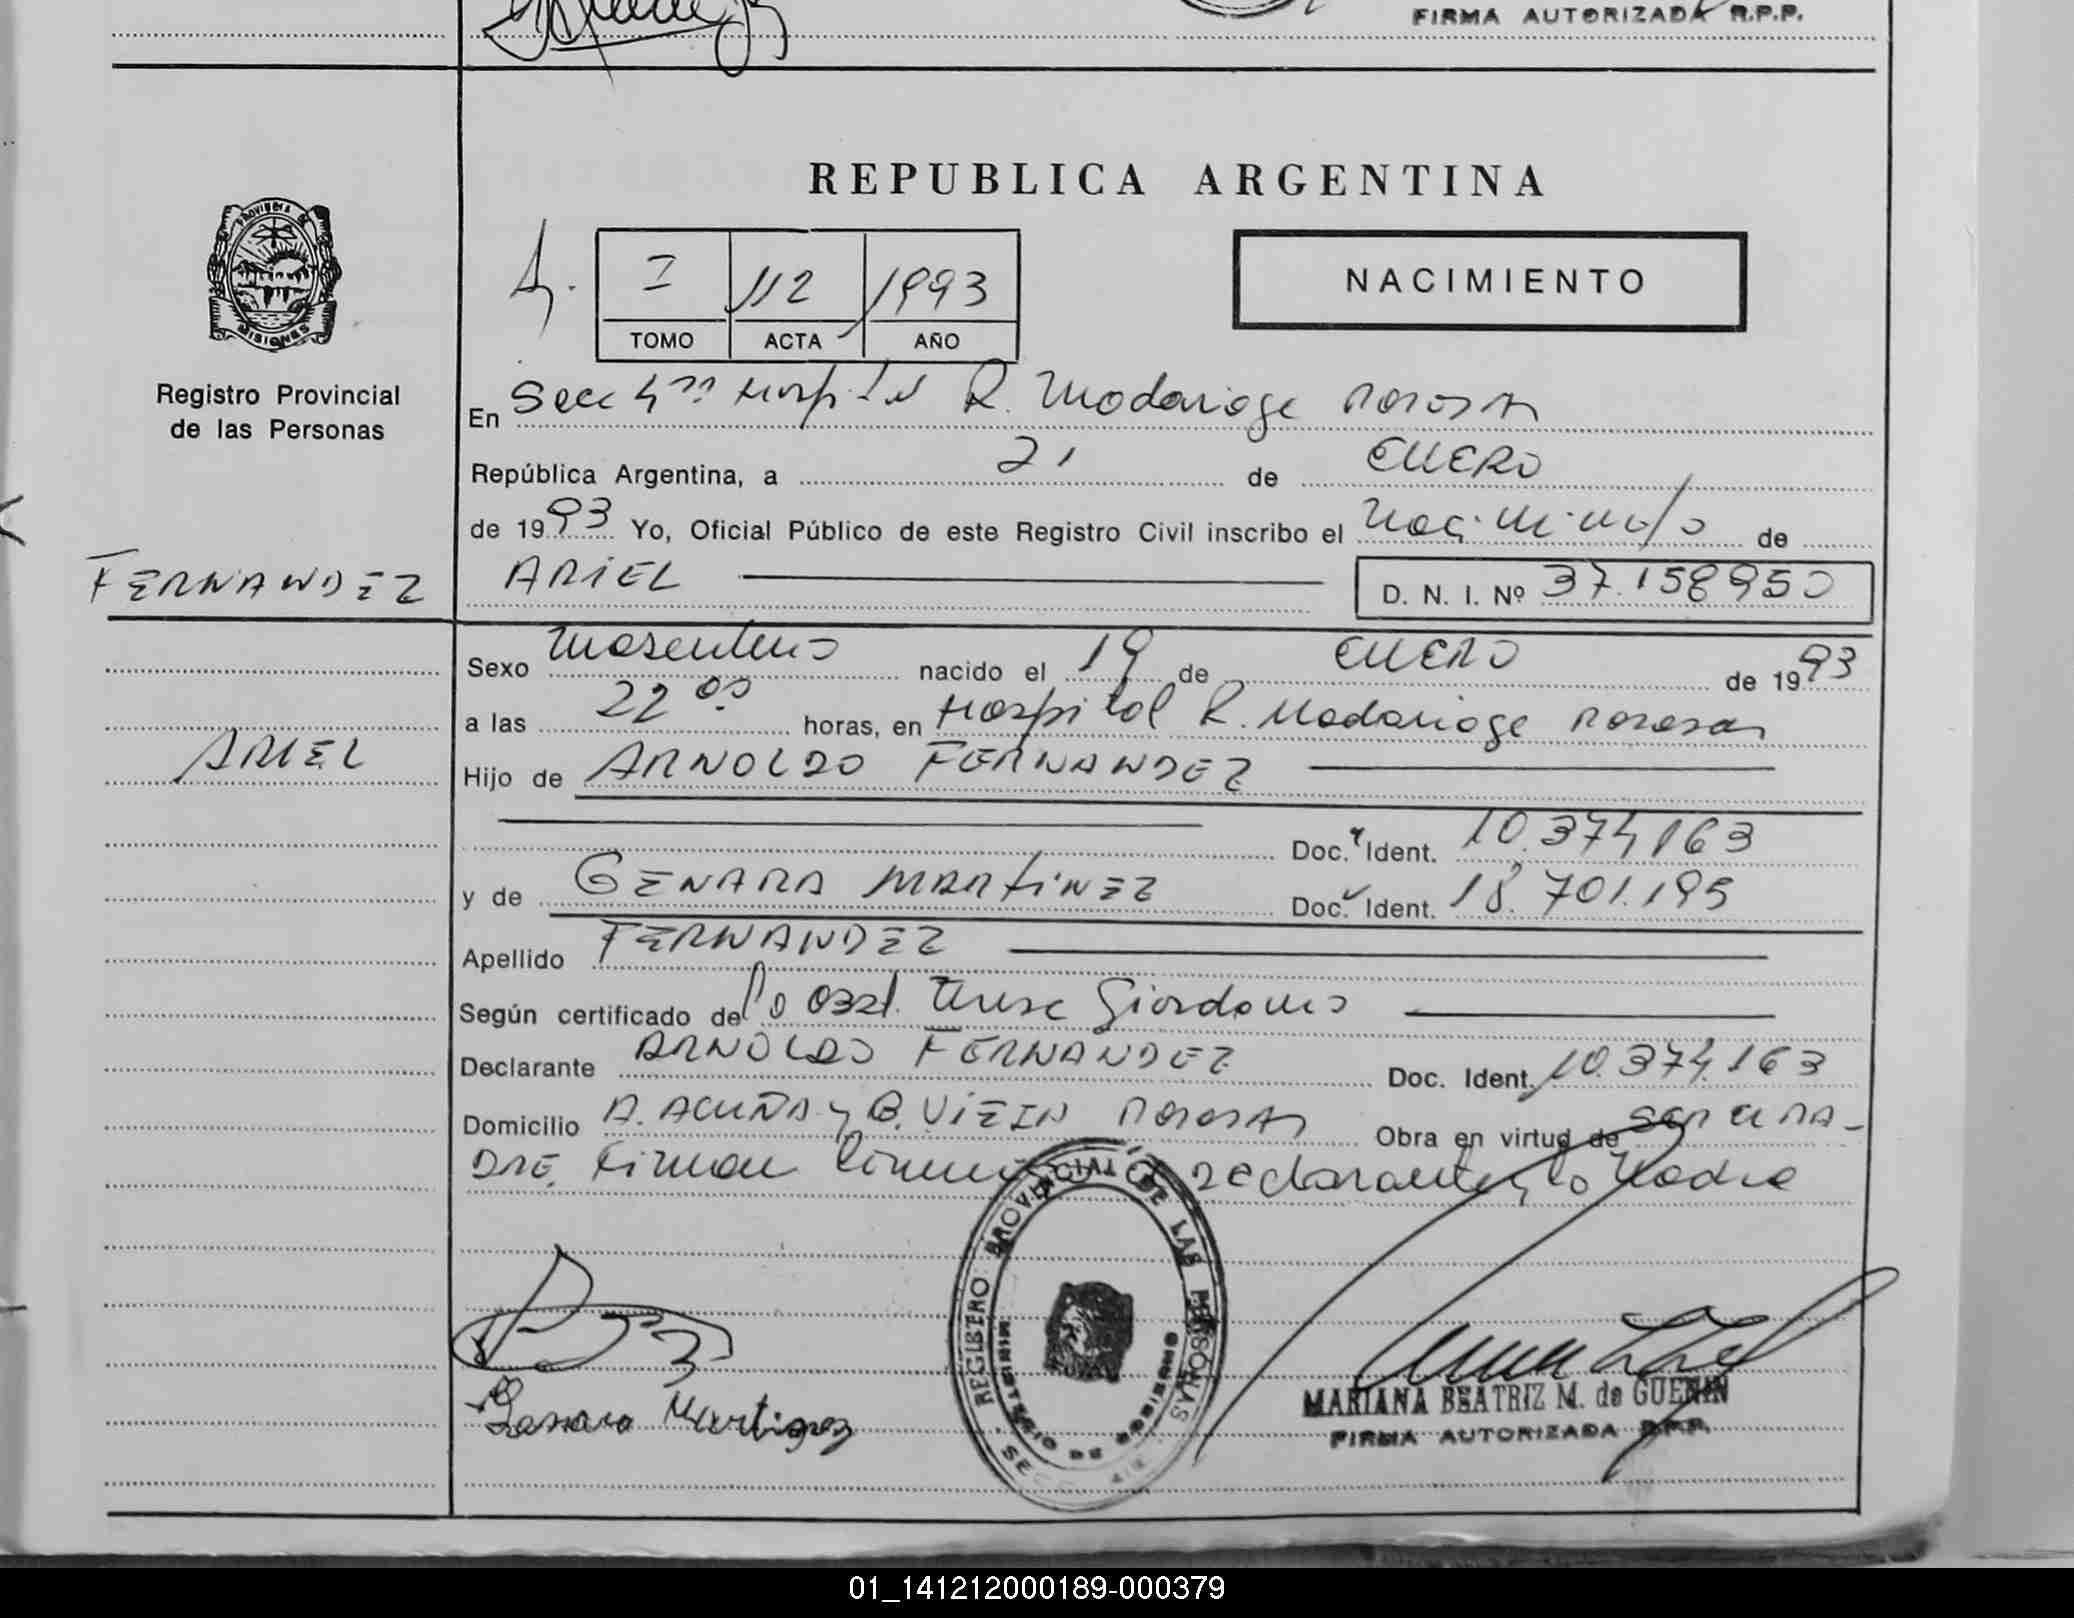 FIRMA AUTORIZADA R.P.P.
REPUBLICA ARGENTINA
PROVINCIA DE MISIONES
I 112 1993
TOMO ACTA AÑO
NACIMIENTO
Registro Provincial
de las Personas
En Secc 4ta Hospital R. Madariaga Posadas
República Argentina, a 21 de ENERO
de 1993 Yo, Oficial Público de este Registro Civil inscribo el Nacimiento de
FERNANDEZ
ARIEL D. N. I. Nº 37.158950
Sexo Masculino nacido el 19 de ENERO de 1993
a las 22 00 horas, en Hospital R. Madariaga Posadas
ARIEL
Hijo de ARNOLDO FERNANDEZ
Doc. Ident. 10.374163
y de GENARA MARTINEZ Doc. Ident. 18.701.195
Apellido FERNANDEZ
Según certificado de la Obst. Teresa Giordano
Declarante ARNOLDO FERNANDEZ Doc. Ident. 10.374.163
Domicilio A. ACUÑA y B. Obra en virtud de SER EL PA-
DRE. Firman el declarante y la Madre
REGISTRO PROVINCIAL DE LAS PERSONAS
MINISTERIO DE GOBIERNO
Genara Martinez
MARIANA BEATRIZ M. de GUENIN
FIRMA AUTORIZADA R.P.P.
01_141212000189-000379